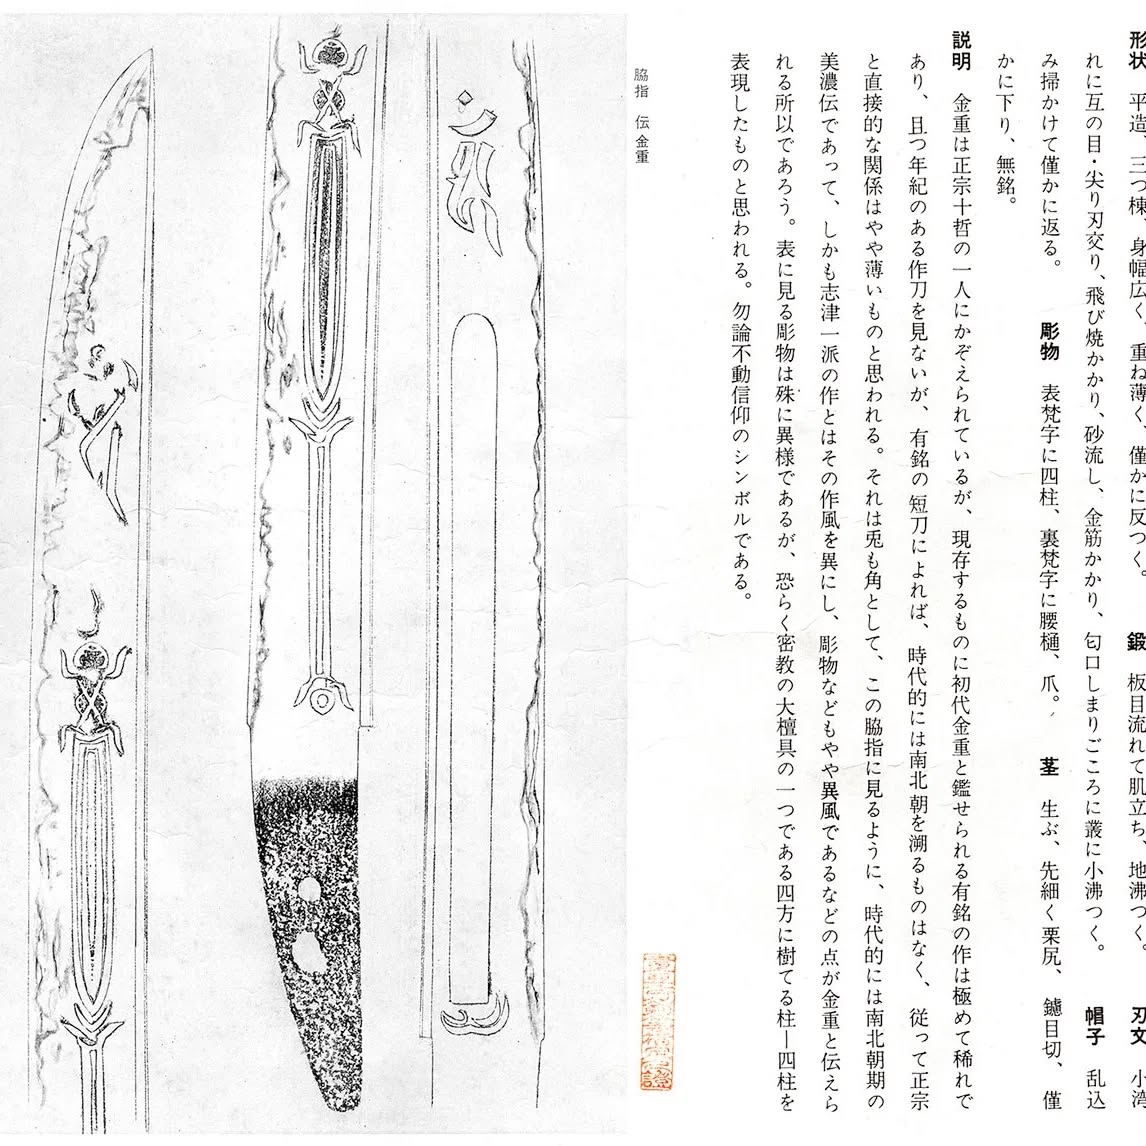 形状　平造、三つ棟、身幅広く、重ね薄く、僅かに反つく。　鍛　板目流れて肌立ち、地沸つく。　刃文　小湾
れに互の目・尖り刃交り、飛び焼かかり、砂流し、金筋かかり、匂口しまりごころに叢に小沸つく。　帽子　乱込
み掃かけて僅かに返る。　彫物　表梵字に四柱、裏梵字に腰樋、爪。　茎　生ぶ、先細く栗尻、鑢目切、僅
かに下り、無銘。
説明　金重は正宗十哲の一人にかぞえられているが、現存するものに初代金重と鑑せられる有銘の作は極めて稀れで
あり、且つ年紀のある作刀を見ないが、有銘の短刀によれば、時代的には南北朝を溯るものはなく、従って正宗
と直接的な関係はやや薄いものと思われる。それは兎も角として、この脇指に見るように、時代的には南北朝期の
美濃伝であって、しかも志津一派の作とはその作風を異にし、彫物などもやや異風であるなどの点が金重と伝えら
れる所以であろう。表に見る彫物は殊に異様であるが、恐らく密教の大檀具の一つである四方に樹てる柱―四柱を
表現したものと思われる。勿論不動信仰のシンボルである。
脇指　伝金重